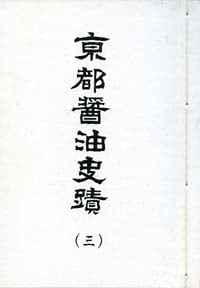 京都醤油史蹟
（三）